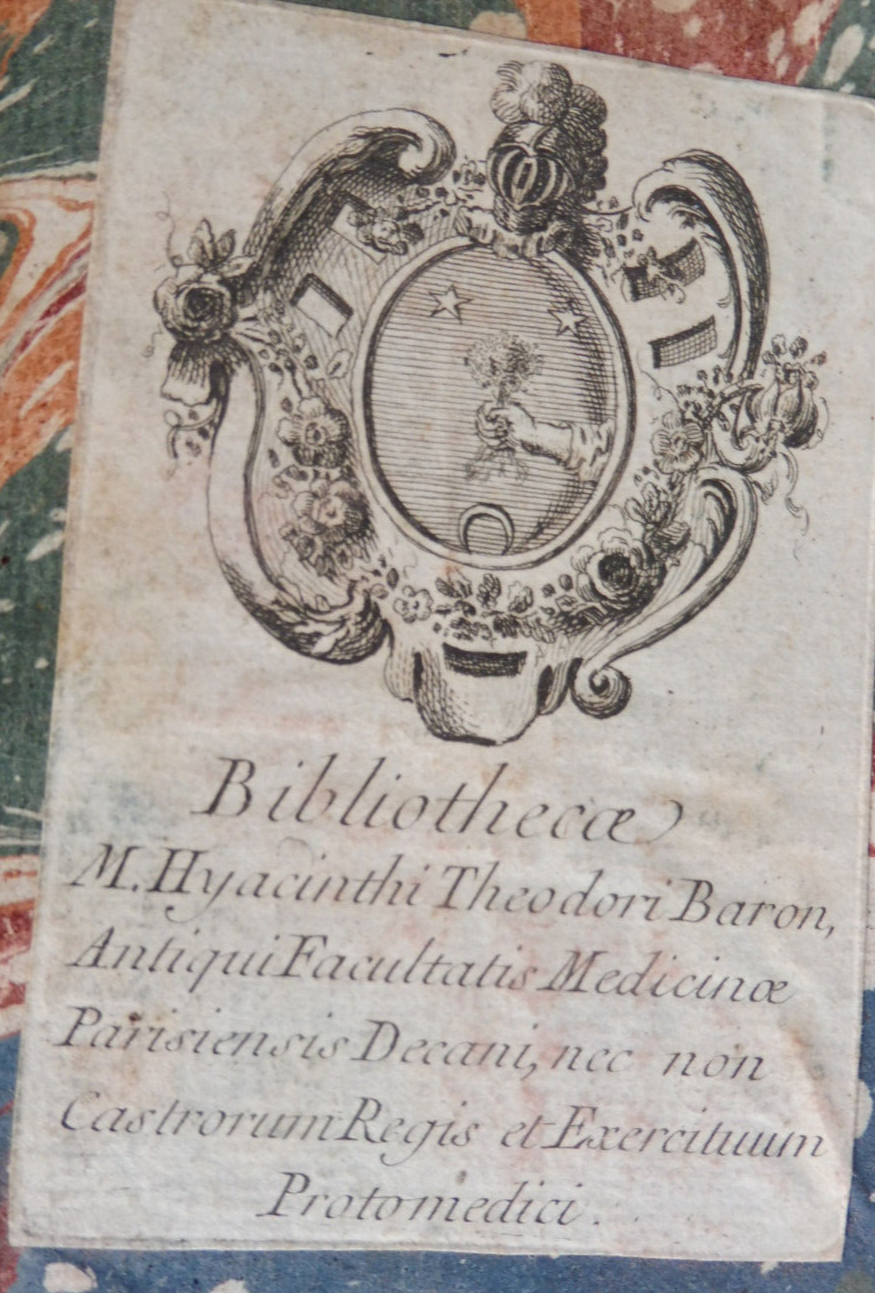 Bibliothecæ
M. Hyacinthi Theodori Baron,
Antiqui Facultatis Medicinæ
Parisiensis Decani, nec non
Castrorum Regis et Exercituum
Protomedici.